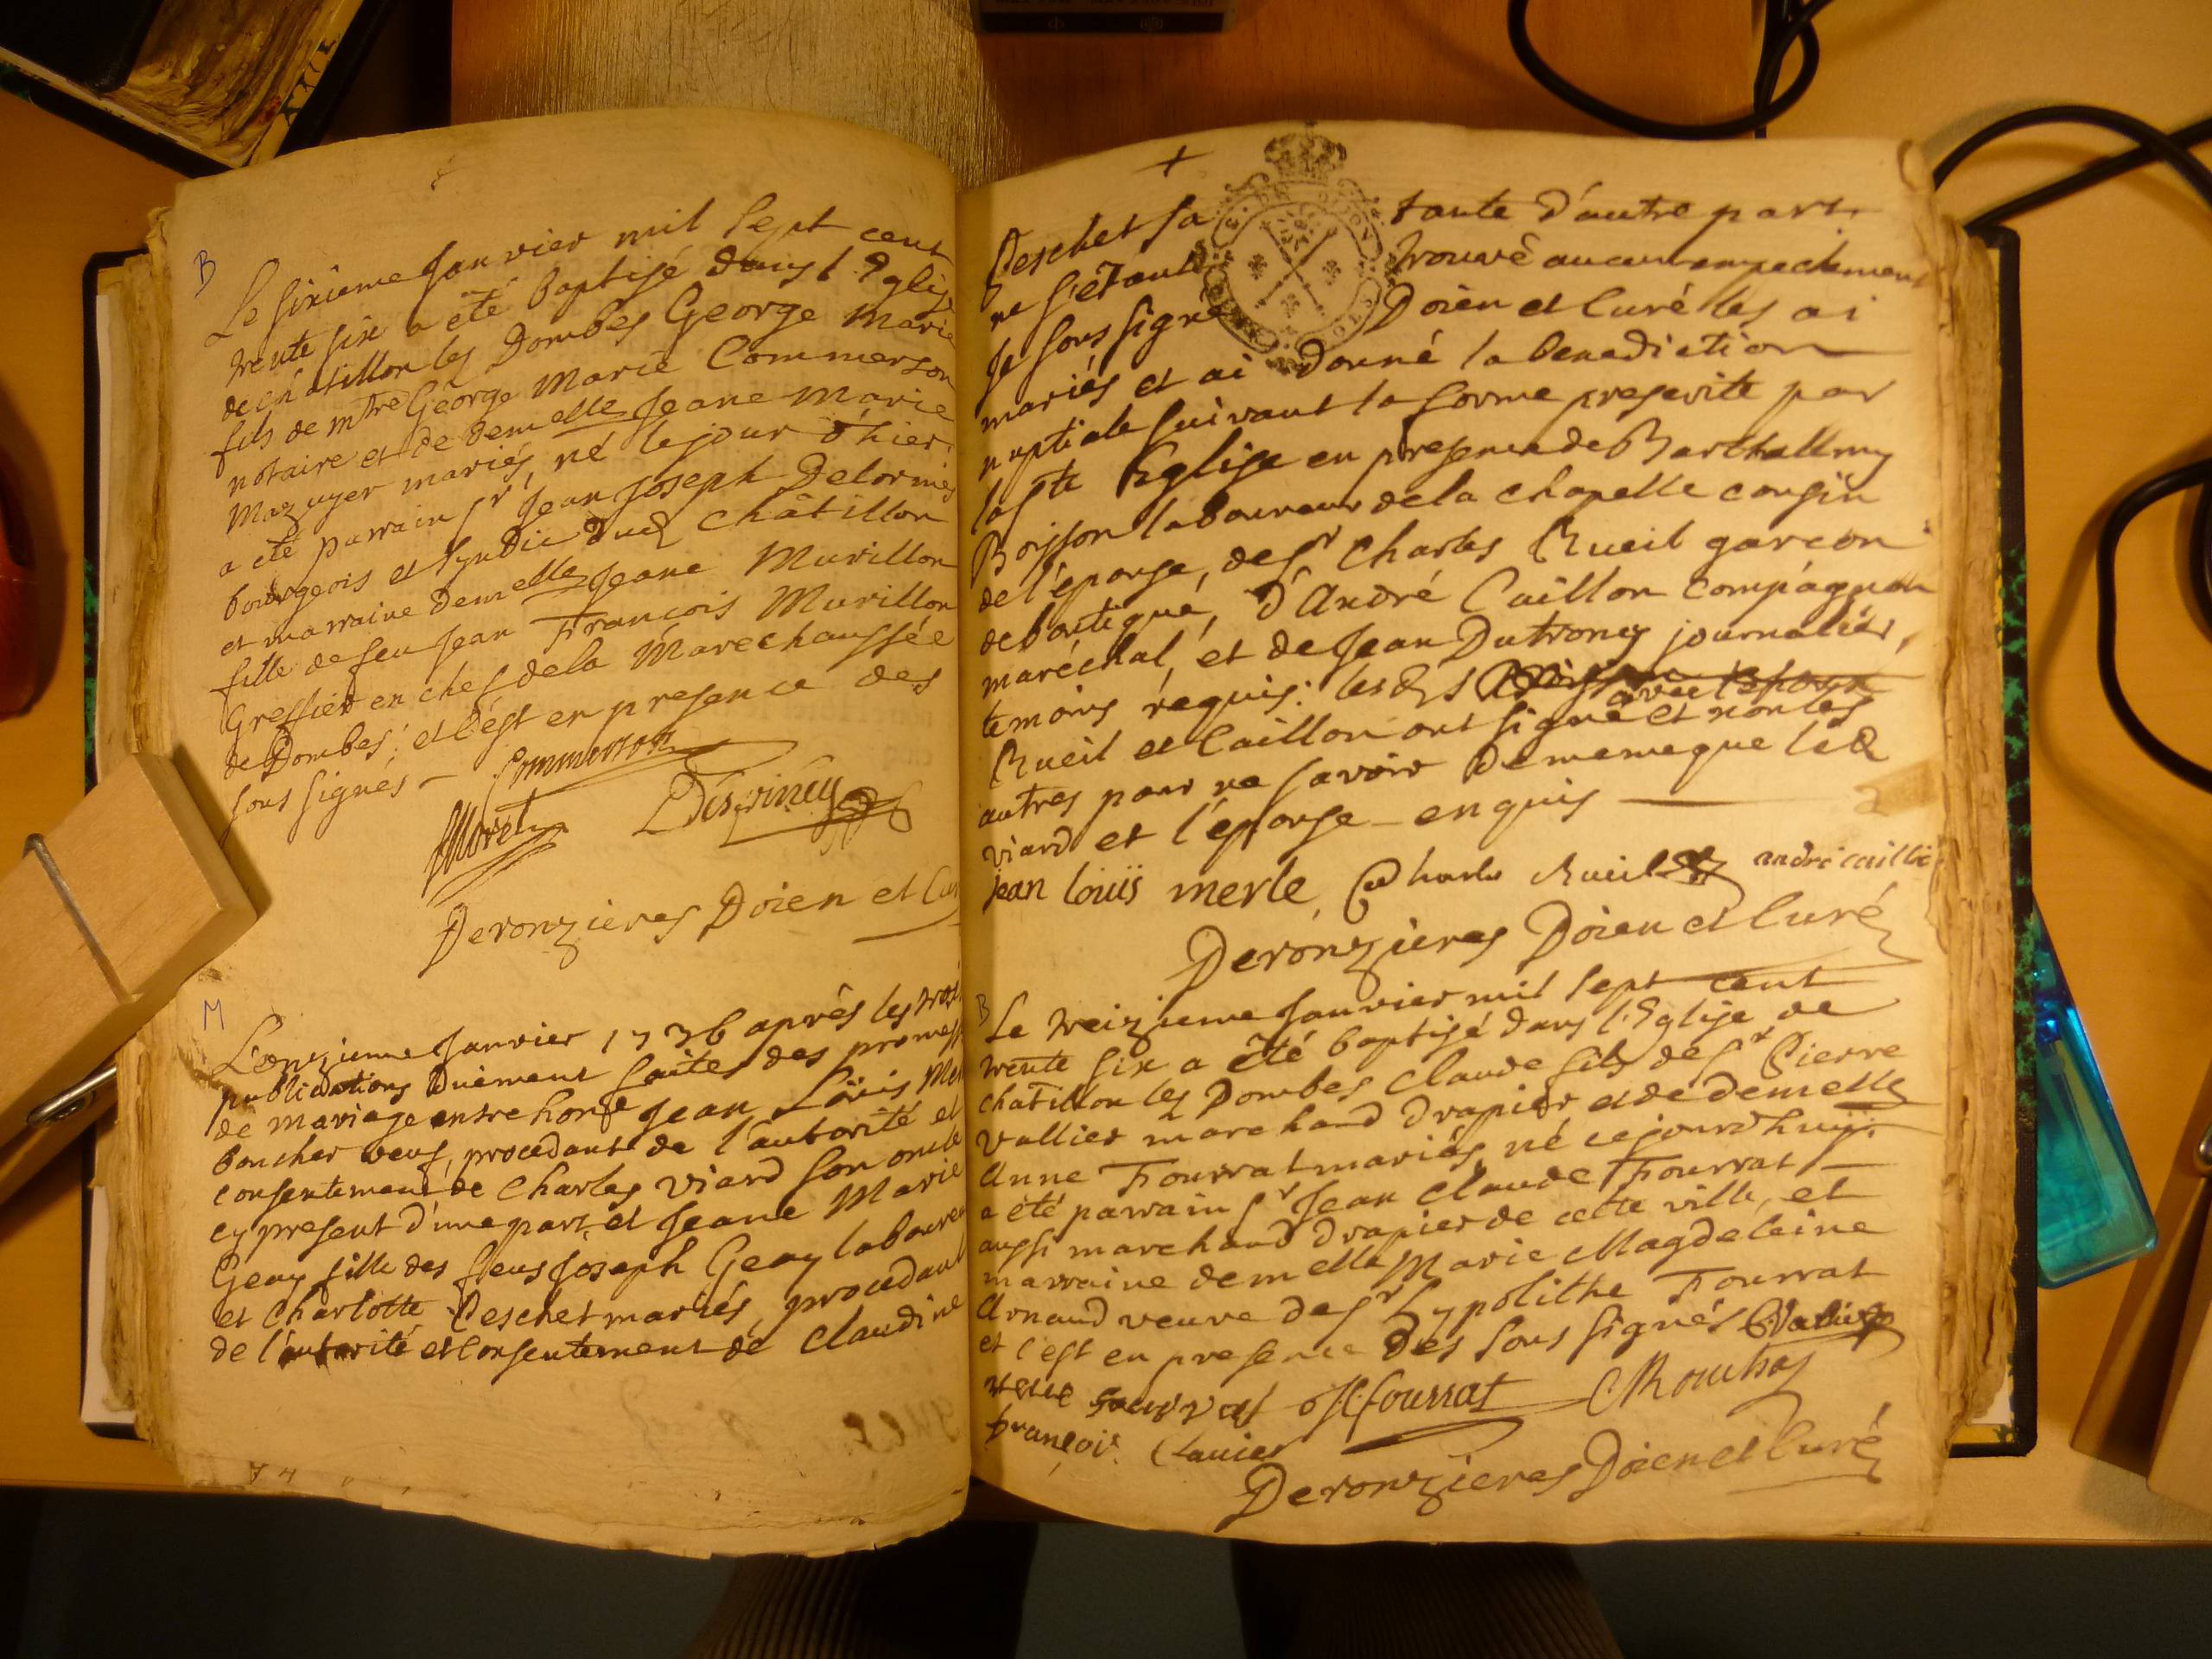 B
Le sixieme Janvier mil sept cent
trente six a été baptisé dans l'Eglise
de chatillon les Dombes George Marie
fils de mtre George Marie Commerson
notaire et de demelle Jeane Marie
Mazuyer mariés, né le jour d'hier
a été parrain sr Jean Joseph Delorme
bourgeois et syndic dud Châtillon
et marraine demelle Jeane Muvillon
fille de feu Jean François Muvillon
Greffier en chef de la Marechaussée
de Dombes; et c'est en presence des
sous signés
Commerson
Moret
Deronzieres Doien et Cur
M
L'onzieme Janvier 1736 après les trois
publications duement faites des promess
de mariage entre honse Jean Loüis Mer
boucher veuf, procedant de l'autorité et
consentement de Charles Viard son oncle
cy present d'une part, et Jeane Marie
Geay fille des feus Joseph Geay laboureu
et Charlotte Deschet mariés, procedant
de l'autorité et consentement de Claudine
+
Deschet sa tante d'autre part.
ne s'étant trouvé aucun empechement
Je sous signé Doien et Curé les ai
mariés et ai donné la benediction
nuptiale suivant la forme prescrite par
la ste Eglise en presence de Barthellemy
Boisson laboureur de la chapelle cousin
de l'epouse, de sr Charles Rueil garcon
de boutique, d'André Caillon compagnon
maréchal, et de Jean Dutroncy journalier,
temoins requis. les ds avec l'epoux
Rueil et Caillon ont signé et non les
autres pour ne savoir de meme que led
viard et l'épouse enquis
jean louïs merle Charle Rueil andré caillo
Deronzieres Doien et Curé
B
Le treizieme Janvier mil sept cent
trente six a été baptisé dans l'Eglise de
chatillon les Dombes Claude fils de sr Pierre
Vallier marchand drapier et de demelle
Anne Fourrat mariés, né cejourd'huy.
a été parrain sr Jean Claude Fourrat
aussi marchand drapier de cette ville, et
marraine demelle Marie Magdeleine
Arnaud veuve de sr hypolithe Fourrat
et c'est en presence des sous signés Vallier
fourrat
françois
Deronzieres Doien et Curé